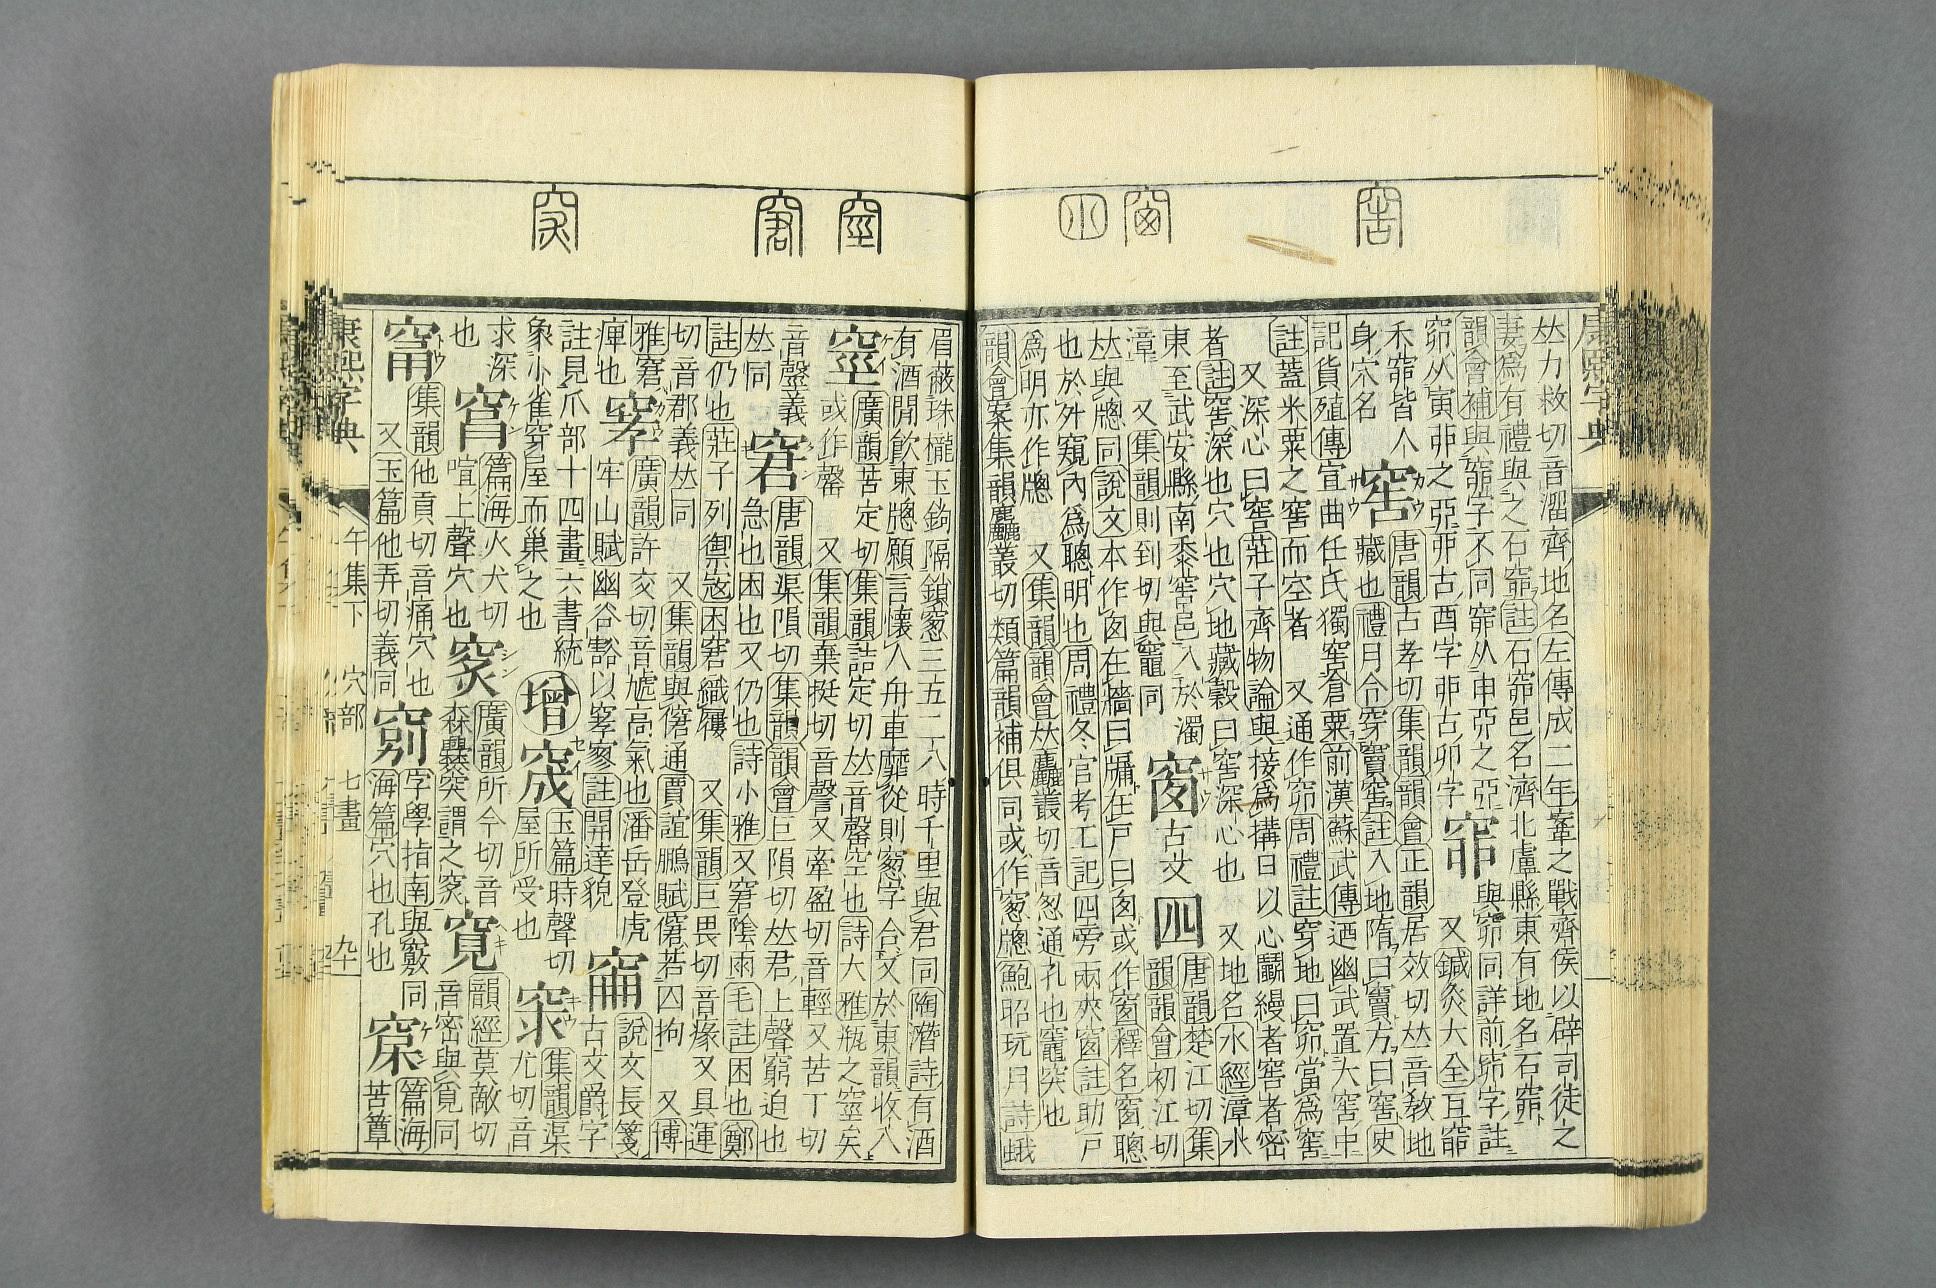 康熙字典
窖
窗
囱
𠀤力救切音溜齊地名左傳成二年鞌之戰齊侯以辟司徒之
妻爲有禮與之石窌註石窌邑名濟北盧縣東有地名石窌
韻會補與窌字不同窌从申亞之亞窌與窌同詳前窌字註
禾窌皆人窖唐韻古孝切集韻韻會正韻居效切𠀤音教地
身穴名藏也禮月令穿竇窖註入地隋曰竇方曰窖史
記貨殖傳宣曲任氏獨窖倉粟前漢蘇武傳迺幽武置大窖中
註蓋米粟之窖而空者 又通作窌周禮註穿地曰窌當爲窖
又深心曰窖莊子齊物論與接爲搆日以心鬭縵者窖者密
者註窖深也穴也穴地藏穀曰窖深心也 又地名水經漳水
東至武安縣南黍窖邑入於濁窗古文四唐韻楚江切集
漳 又集韻則到切與竈同韻韻會初江切
𠀤與牕同說文本作囱在牆曰牖在戸曰囱或作窗釋名窗聰
也於外窺內爲聰明也周禮冬官考工記四旁兩夾窗註助戸
爲明亦作牕 又集韻韻會𠀤麤叢切音怱通孔也竈突也
韻會案集韻麤叢切類篇韻補俱同或作窻牕鮑昭玩月詩蛾
窒
窘
眉蔽珠櫳玉鉤隔鎖窻三五二八時千里與君同陶潛詩有酒
有酒閒飮東牕願言懷人舟車靡從則窻字合又於東韻收入
窒廣韻苦定切集韻詰定切𠀤音罄空也詩大雅瓶之窒矣
或作罄 又集韻棄挺切音謦又牽盈切音輕又苦丁切
音罄義窘唐韻渠隕切集韻韻會巨隕切𠀤君上聲窮迫也
𠀤同急也困也又仍也詩小雅又窘陰雨毛註困也鄭
註仍也莊子列禦寇困窘織屨 又集韻巨畏切音㙺又具運
切音郡義𠀤同 又集韻與僒通賈誼鵬賦僒若囚拘 又博
雅窘窙廣韻許交切音虓高氣也潘岳登虎
㾓也牢山賦幽谷豁以窙寥註開達貌古文爵字
註見爪部十四畫六書統增窚玉篇時聲切集韻渠
象小雀穿屋而巢之也屋所受也尤切音
求深窅篇海火犬切廣韻所今切音韻經莫敵切
也喧上聲穴也森㸑突謂之𥥍音密與覓同
集韻他貢切音痛穴也字學指南與竅同篇海
又玉篇他弄切義同海篇穴也孔也苦蕈
康熙字典
午集下 穴部 七畫 九十一